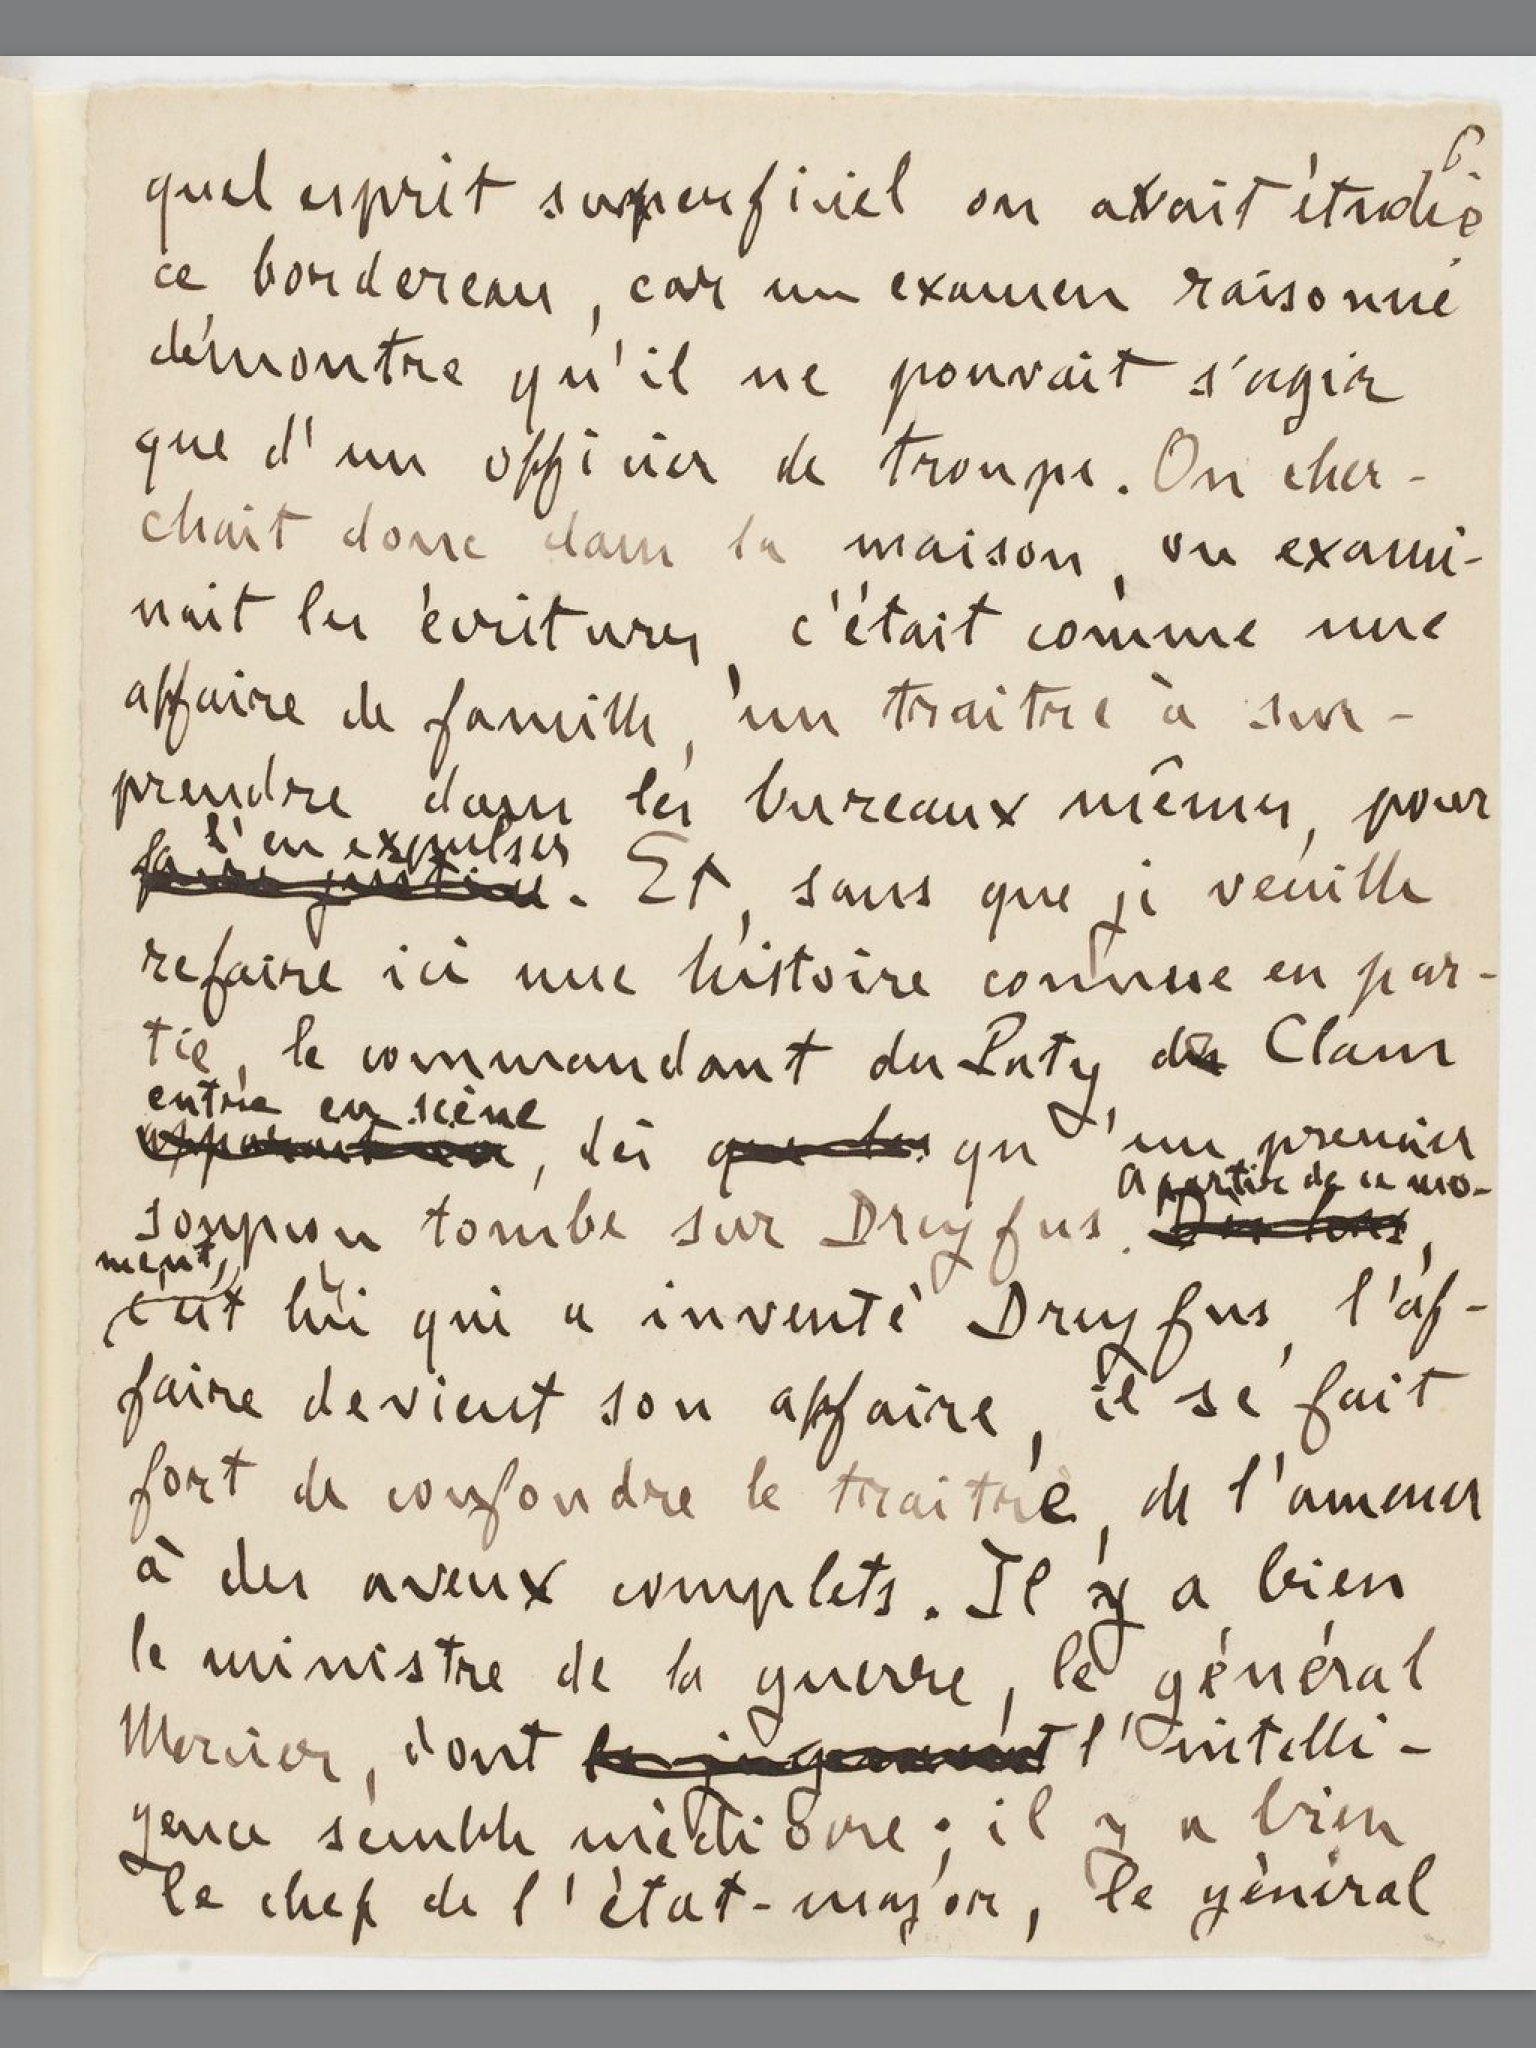 6
quel esprit superficiel on avait étudié
ce bordereau, car un examen raisonné
démontre qu'il ne pouvait s'agir
que d'un officier de troupe. On cher-
chait donc dans la maison, on exami-
nait les écritures, c'était comme une
affaire de famille, un traître à sur-
prendre dans les bureaux mêmes, pour
l'en expulser
faire justice. Et, sans que je veuille
refaire ici une histoire connue en par-
tie, le commandant du Paty du Clam
entre en scène
, dès que les qu'un premier
A partir de ce mo-
soupçon tombe sur Dreyfus. Dès lors,
ment,
c'est lui qui a inventé Dreyfus, l'af-
faire devient son affaire, il se fait
fort de confondre le traître, de l'amener
à des aveux complets. Il y a bien
le ministre de la guerre, le général
Mercier, dont le jugement l'intelli-
gence semble médiocre ; il y a bien
le chef de l'état-major, le général